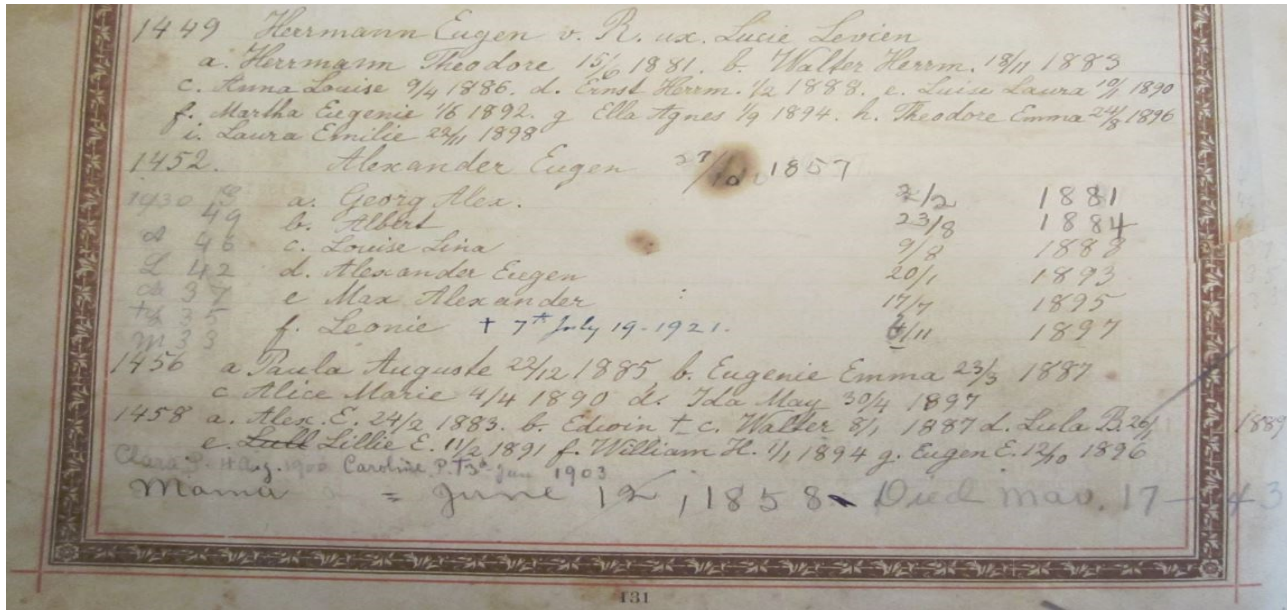 1449 Herrmann Eugen v. R. ux. Lucie Levien
a. Herrmann Theodore 15/6 1881. b. Walter Herrm. 18/11 1883
c. Anna Louise 9/4 1886. d. Ernst Herrm. 1/2 1888. e. Luise Laura 10/1 1890
f. Martha Eugenie 1/6 1892. g Ella Agnes 1/9 1894. h. Theodore Emma 24/8 1896
i. Laura Emilie 22/1 1898
1452. Alexander Eugen 1857
1930 G a. Georg Alex. 2/2 1881
49 b. Albert 23/8 1884
46 c. Louise Lina 9/8 1888
L 42 d. Alexander Eugen 20/1 1893
37 e Max Alexander 17/7 1895
35 f. Leonie + 7th July 19-1921. 6/11 1897
M 33
1456 a Paula Auguste 22/12 1885 b. Eugenie Emma 23/3 1887
c Alice Marie 4/4 1890 d. Ida May 30/4 1897
1458 a. Alex. E. 24/2 1883. b. Edwin + c. Walter 8/1 1887 d. Lula B. 26/1 1889
e. Lull Lillie E. 11/2 1891 f. William H. 1/1 1894 g. Eugen E. 12/10 1896
Clara P. 14 Aug. 1900 Caroline P. + 3d Jun 1903
Mama = June 12, 1858 - Died Mar. 17-43
131